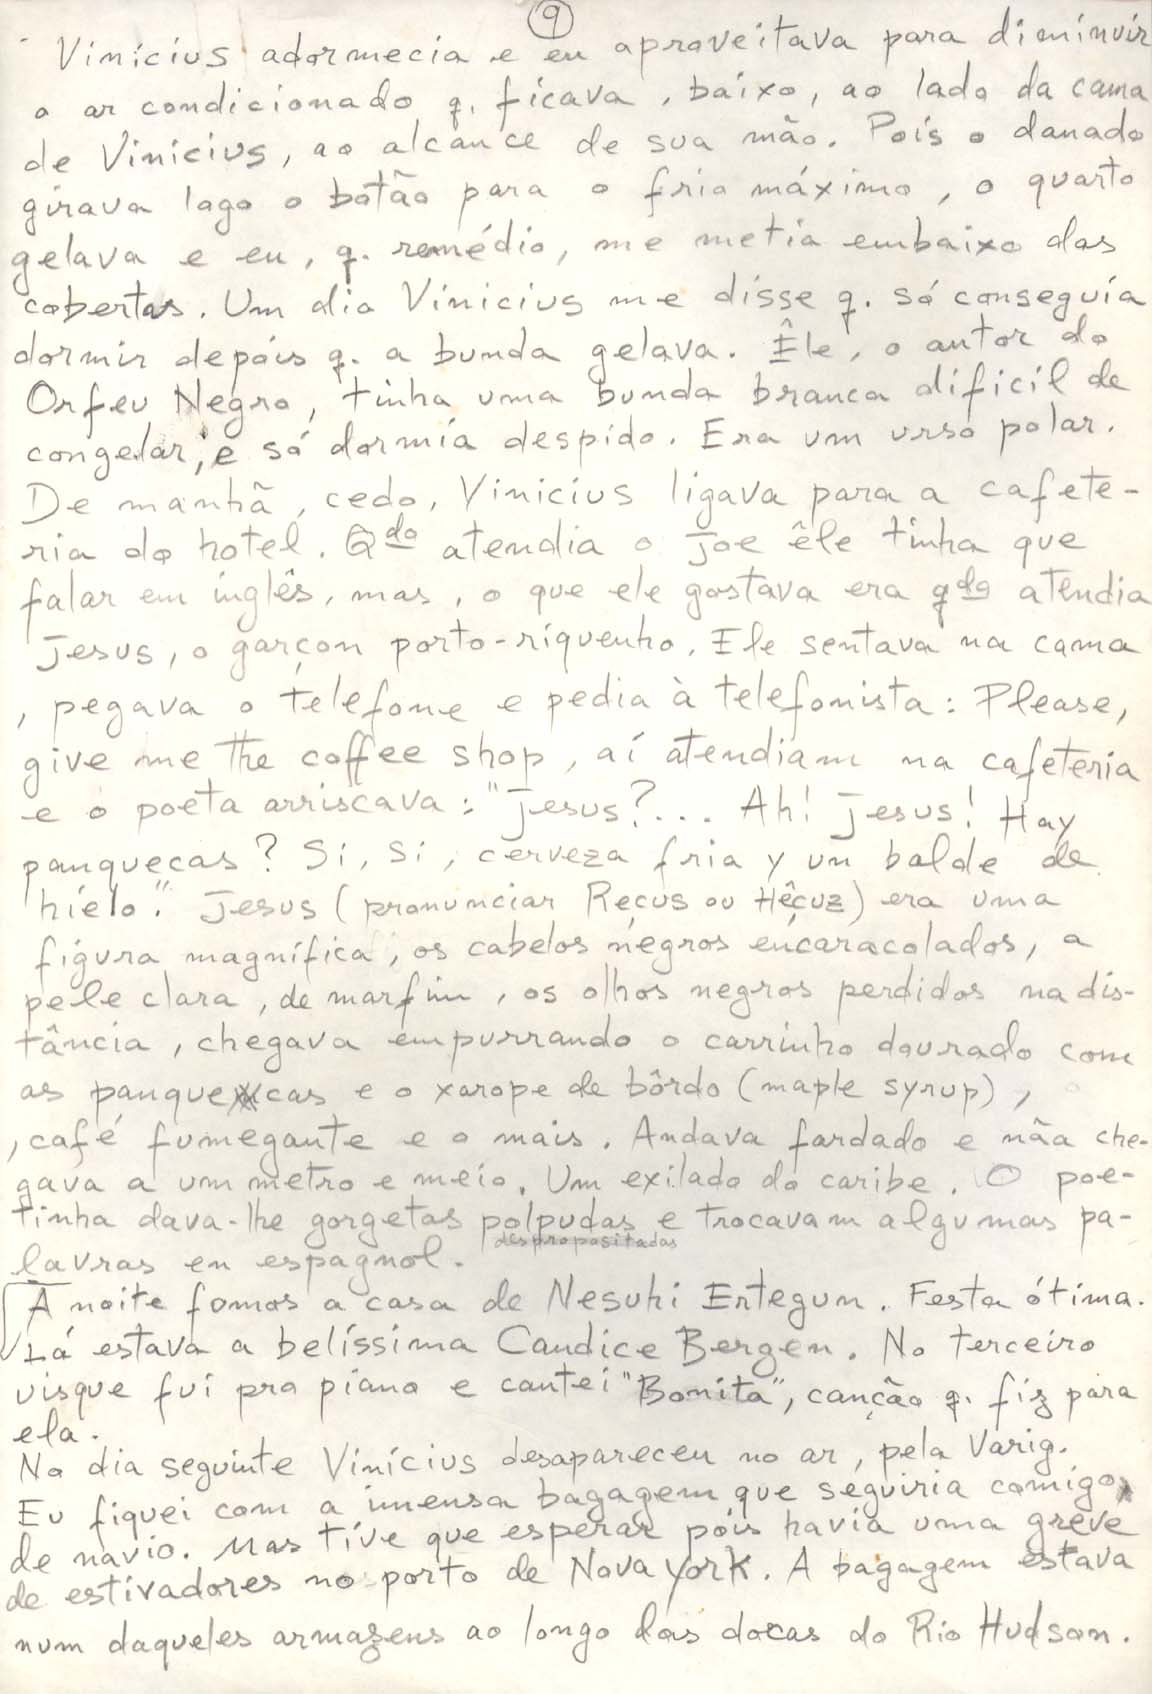 9
Vinícius adormecia e eu aproveitava para diminuir
o ar condicionado q. ficava, baixo, ao lado da cama
de Vinicius, ao alcance de sua mão. Pois o danado
girava logo o botão para o frio máximo, o quarto
gelava e eu, q. remédio, me metia embaixo das
cobertas. Um dia Vinicius me disse q. só conseguia
dormir depois q. a bunda gelava. Êle, o autor do
Orfeu Negro, tinha uma bunda branca dificil de
congelar, e só dormia despido. Era um urso polar.
De manhã, cedo, Vinicius ligava para a cafete-
ria do hotel. Qdo atendia o Joe êle tinha que
falar em inglês, mas, o que ele gostava era qdo atendia
Jesus, o garçon porto-riquenho. Ele sentava na cama
, pegava o telefone e pedia à telefonista: Please,
give me the coffee shop, aí atendiam na cafeteria
e o poeta arriscava: "Jesus?... Ah! Jesus! Hay
panquecas? Si, si, cerveza fria y un balde de
hielo". Jesus (pronunciar Reçus ou Hêçuz) era uma
figura magnífica, os cabelos negros encaracolados, a
pele clara, de marfim, os olhos negros perdidos na dis-
tância, chegava empurrando o carrinho dourado com
as panquecas e o xarope de bôrdo (maple syrup),
, café fumegante e o mais. Andava fardado e não che-
gava a um metro e meio. Um exilado do caribe. O poe-
tinha dava-lhe gorgetas polpudas e trocavam algumas pa-
despropositadas
lavras en espagnol.
A noite fomos a casa de Nesuhi Ertegun. Festa ótima.
Lá estava a belíssima Candice Bergen. No terceiro
uisque fui pro piano e cantei "Bonita", canção q. fiz para
ela.
No dia seguinte Vinícius desapareceu no ar, pela Varig.
Eu fiquei com a imensa bagagem que seguiria comigo,
de navio. Mas tive que esperar pois havia uma greve
de estivadores no porto de Nova York. A bagagem estava
num daqueles armazens ao longo das docas do Rio Hudson.